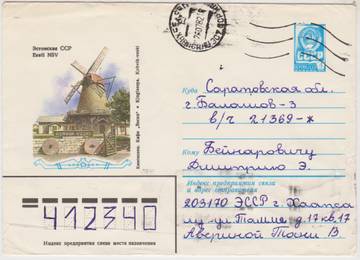 Эстонская ССР
Eesti NSV
Кингисепп. Кафе „Вески“ • Kingissepa. Kohvik-veski
СССР
Куда Саратовская ол.
г. Балашов-3
в/ч 21369-ж
Кому Бейнаровичу
Дмитрию Э.
Индекс предприятия связи и адрес отправителя
203170 ЭССР г. Хаапса
лу ул Ташия д. 17 кв 17
Авериной Тоски В.
412340
Индекс предприятия связи места назначения